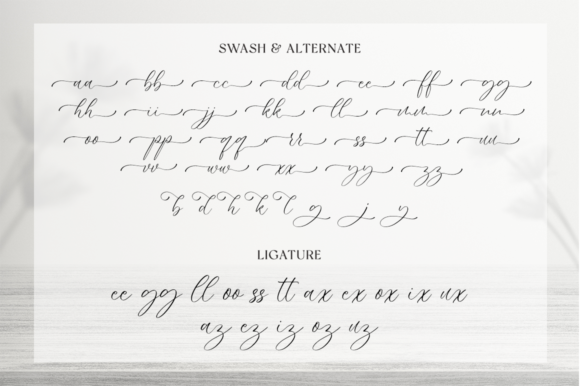 SWASH & ALTERNATE
aa bb cc dd ee ff gg
hh ii jj kk ll mm nn
oo pp qq rr ss tt uu
vv ww xx yy zz
b d h k l g j y
LIGATURE
ee gg ll oo ss tt ax ex ox ix ux
az ez iz oz uz